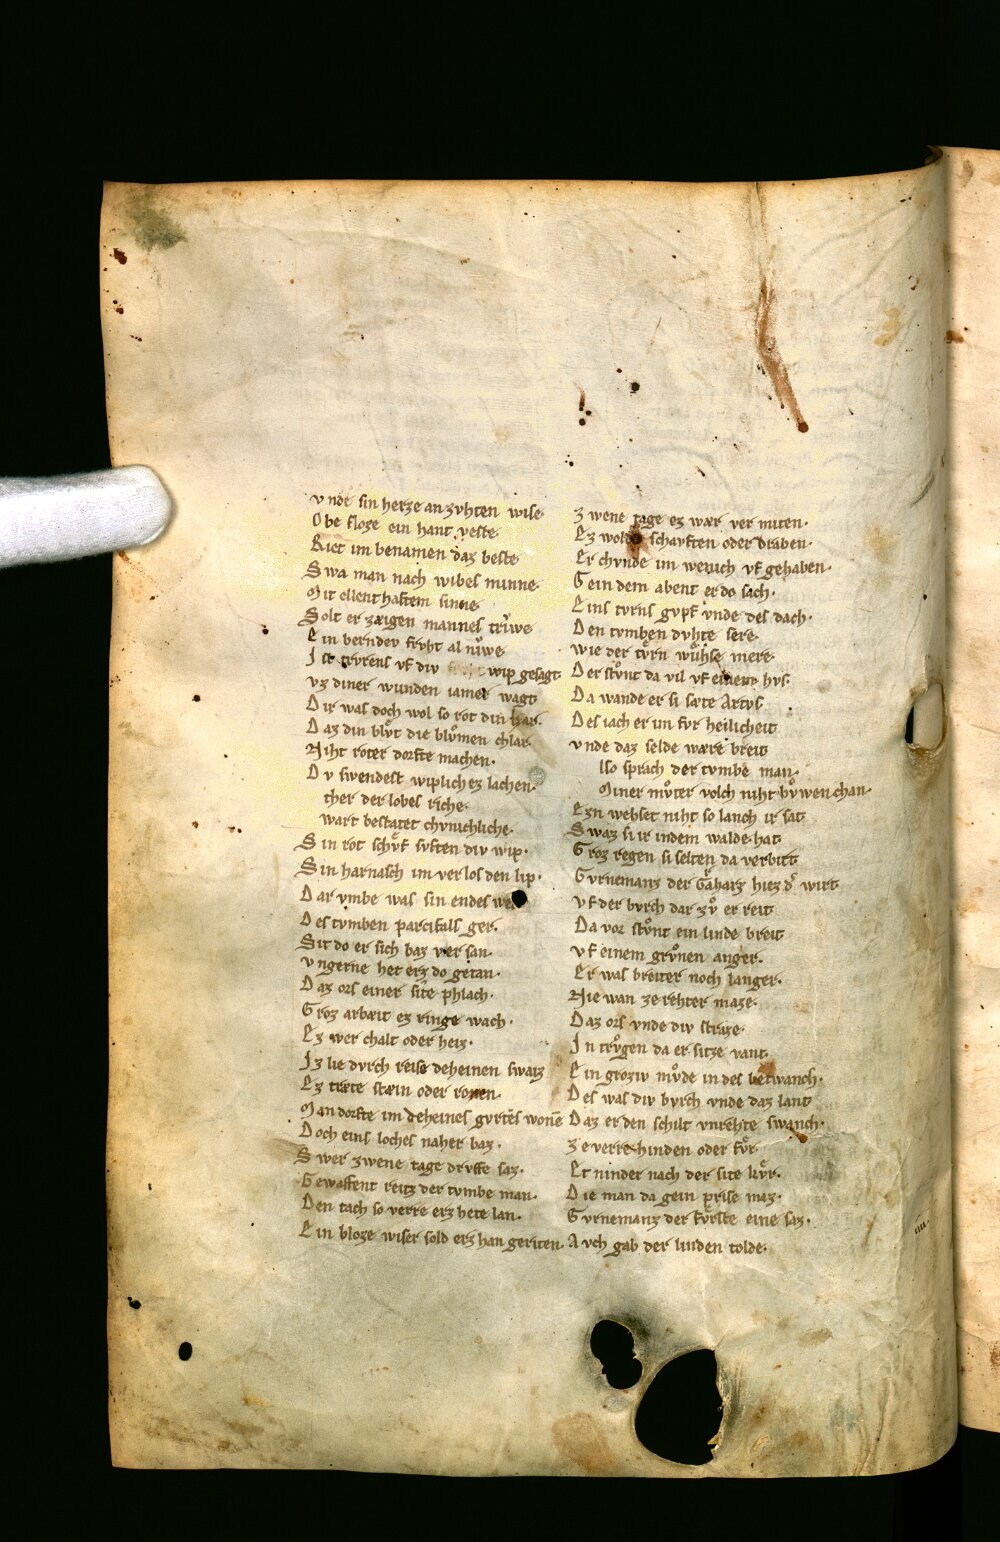 v nde sin herze an zvhten wise·
O be sloze ein hant veste
R iet im benamen daz beste
S wa man nach wibes minne·
M it ellenthaftem sinne·
S olt er zæigen mannes triwe
E in bernder frvht al nuwe
I st trvrens vf div wip gesagt
v z diner wunden iamer wagt
D ir was doch wol so rot din har·
D az din blvt die blvmen chlar
N iht roter dorfte machen·
D v swendest wiplichez lachen·
ther der lobes riche·
wart bestatet chvnichliche·
S in rot schvf svften div wip·
S in harnasch im verlos den lip·
D ar vmbe was sin endes we
D es tvmben parcifalls ger·
S it do er sich baz versan·
v ngerne het erz do getan·
D az ors einer site phlach·
G roz arbæit ez ringe wach·
E z wer chalt oder heiz·
I z lie dvrch reise deheinen swaiz
E z træte stæin oder ronen·
M an dorfte im deheines gvrtes wone
D och eins loches naher baz·
S wer zwene tage drvffe saz·
G ewaffent reitz der tvmbe man·
D en tach so verre erz hete lan·
E in bloze wiser sold erz han geriten·
Z wene tage ez wær vermiten·
E z wolde schavften oder draben·
E r chvnde im wenich vf gehaben·
G ein dem abent er do sach·
E ins tvrns gvpf vnde des dach·
D en tvmben dvhte sere·
wie der tvrn wuhse mere·
D er stvnt da vil vf einem hvs·
D a wande er si sæte Artvs
D es iach er im fvr heilicheit
v nde daz selde wære breit
lso sprach der tvmbe man·
Miner mvter volch niht bvwen chan·
E zn wehset niht so lanch ir sat
S waz si ir indem walde hat·
G roz regen si selten da verbirt
G vrnemanz der Graharz hiez der wirt
v f der bvrch dar zv er reit
D a vor stvnt ein linde breit
v f einem grvnen anger·
E r was breiter noch langer·
N ie wan ze rehter maze·
D az ors vnde div straze·
I n trvgen da er sitze vant·
E in groziv mvde in des betwanch·
D es was div bvrch vnde daz lant
D az er den schilt vnrehte swanch·
Z e verre hinden oder fvr·
E t ninder nach der site kvr·
D ie man da gein prise maz·
G vrnemanz der fvrste eine saz·
A vch gab der linden tolde·